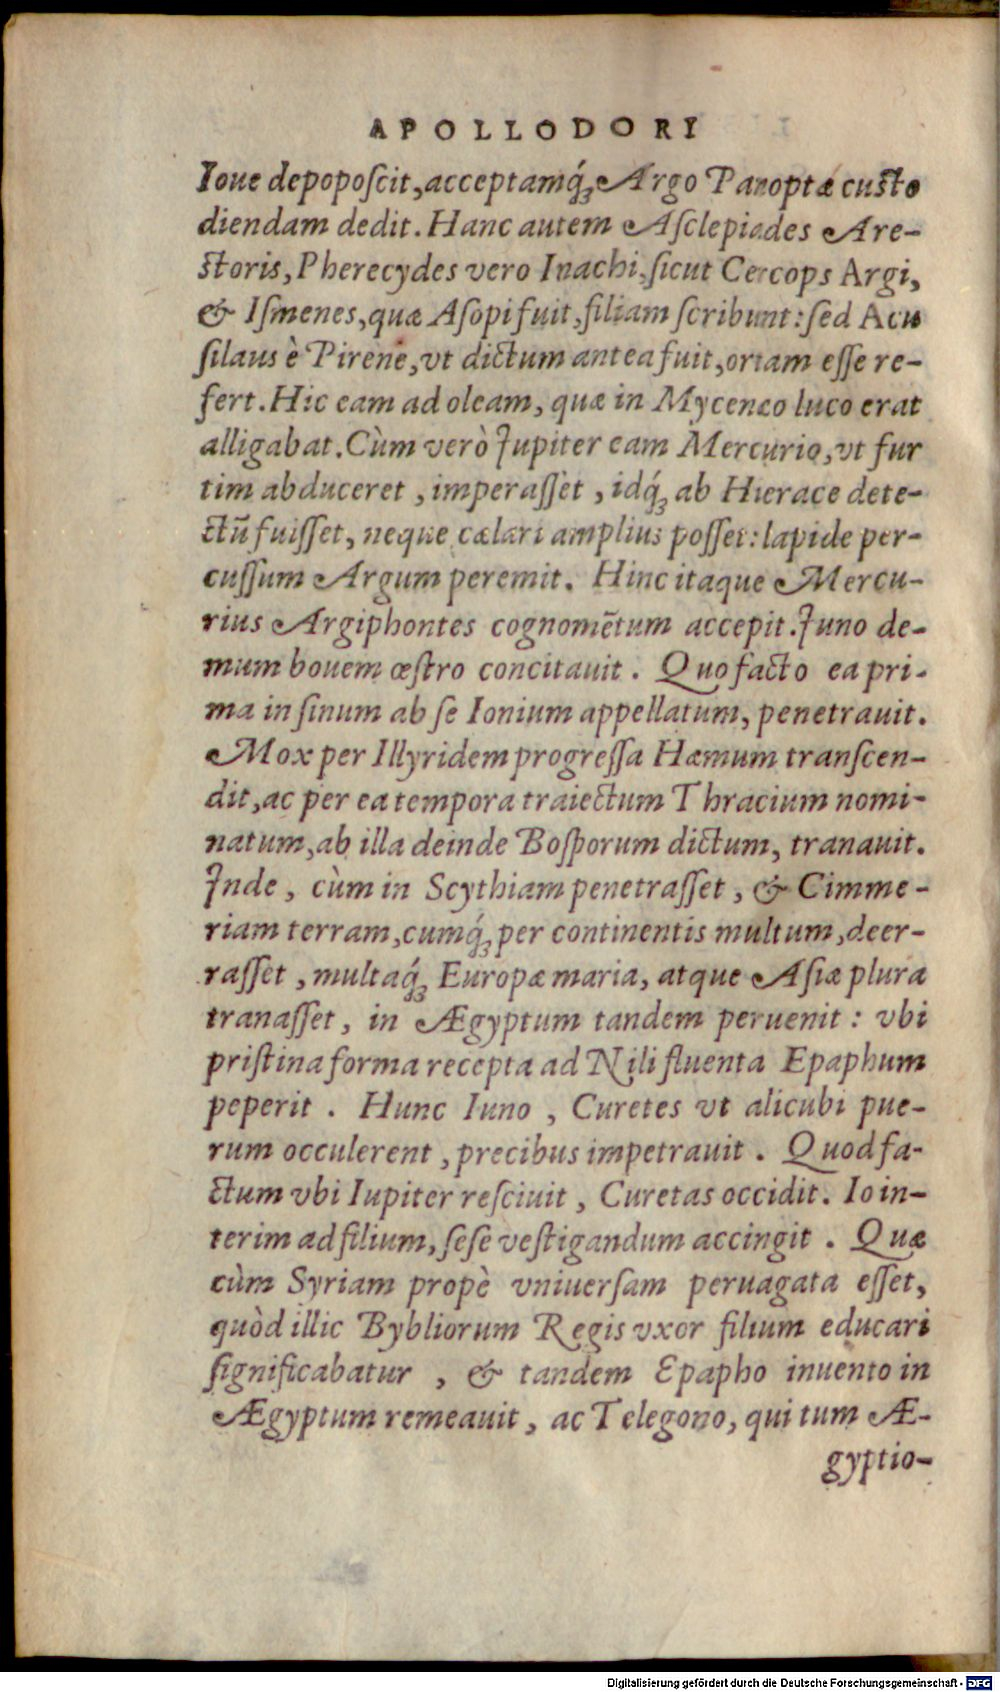 APOLLODORI
Ioue depoposcit, acceptamq́ꝫ Argo Panoptæ custo
diendam dedit. Hanc autem Asclepiades Are-
storis, Pherecydes vero Inachi, sicut Cercops Argi,
& Ismenes, quæ Asopi fuit, filiam scribunt: sed Acu
silaus è Pirene, vt dictum antea fuit, ortam esse re-
fert. Hic eam ad oleam, quæ in Mycenæo luco erat
alligabat. Cùm verò Jupiter eam Mercurio, vt fur
tim abduceret, imperasset, idq́ꝫ ab Hierace dete-
ctũ fuisset, neque cælari amplius posset: lapide per-
cussum Argum peremit. Hinc itaque Mercu-
rius Argiphontes cognomẽtum accepit. Juno de-
mum bouem œstro concitauit. Quo facto ea pri-
ma in sinum ab se Ionium appellatum, penetrauit.
Mox per Illyridem progressa Hæmum transcen-
dit, ac per ea tempora traiectum Thracium nomi-
natum, ab illa deinde Bosporum dictum, tranauit.
Jnde, cùm in Scythiam penetrasset, & Cimme-
riam terram, cumq́ꝫ per continentis multum, deer-
rasset, multaq́ꝫ Europæ maria, atque Asiæ plura
tranasset, in Ægyptum tandem peruenit: vbi
pristina forma recepta ad Nili fluenta Epaphum
peperit. Hunc Iuno, Curetes vt alicubi pue-
rum occulerent, precibus impetrauit. Quod fa-
ctum vbi Iupiter resciuit, Curetas occidit. Io in-
terim ad filium, sese vestigandum accingit. Quæ
cùm Syriam propè vniuersam peruagata esset,
quòd illic Bybliorum Regis vxor filium educari
significabatur, & tandem Epapho inuento in
Ægyptum remeauit, ac Telegono, qui tum Æ-
gyptio-
Digitalisierung gefördert durch die Deutsche Forschungsgemeinschaft - DFG